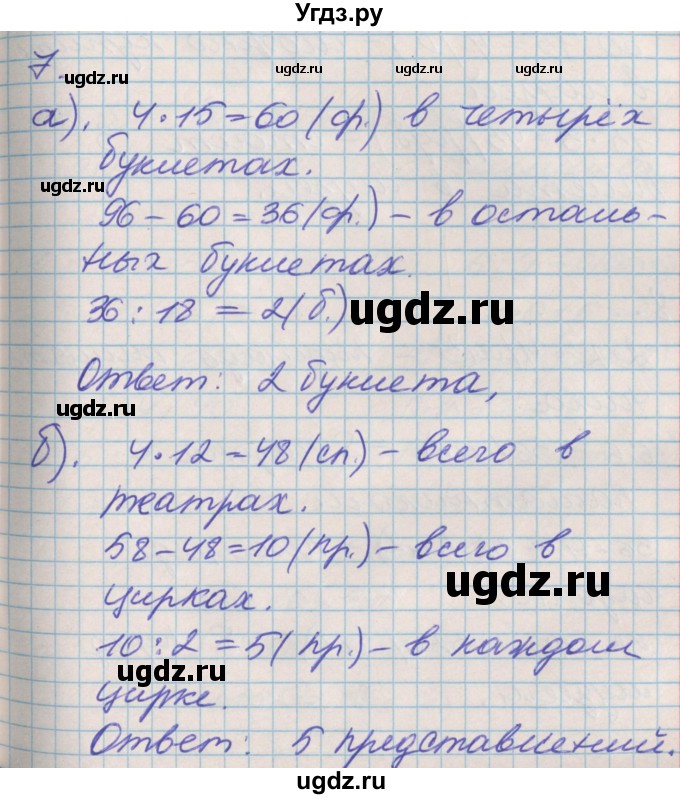 Угдз.ру
7.
ugdz.ru ugdz.ru ugdz.ru
а). 4·15=60(ф.) в четырёх
букетах.
ugdz.ru
96-60=36(ф.)-в осталь-
ных букетах.
36:18=2(б.)
ugdz.ru
Ответ: 2 букета,
ugdz.ru
б). 4·12=48(сп.)-всего в
театрах.
58-48=10(пр.)-всего в
ugdz.ru
цирках.
10:2=5(пр.)-в каждом
ugdz.ru
цирке.
Ответ: 5 представлений.
ugdz.ru
ugdz.ru